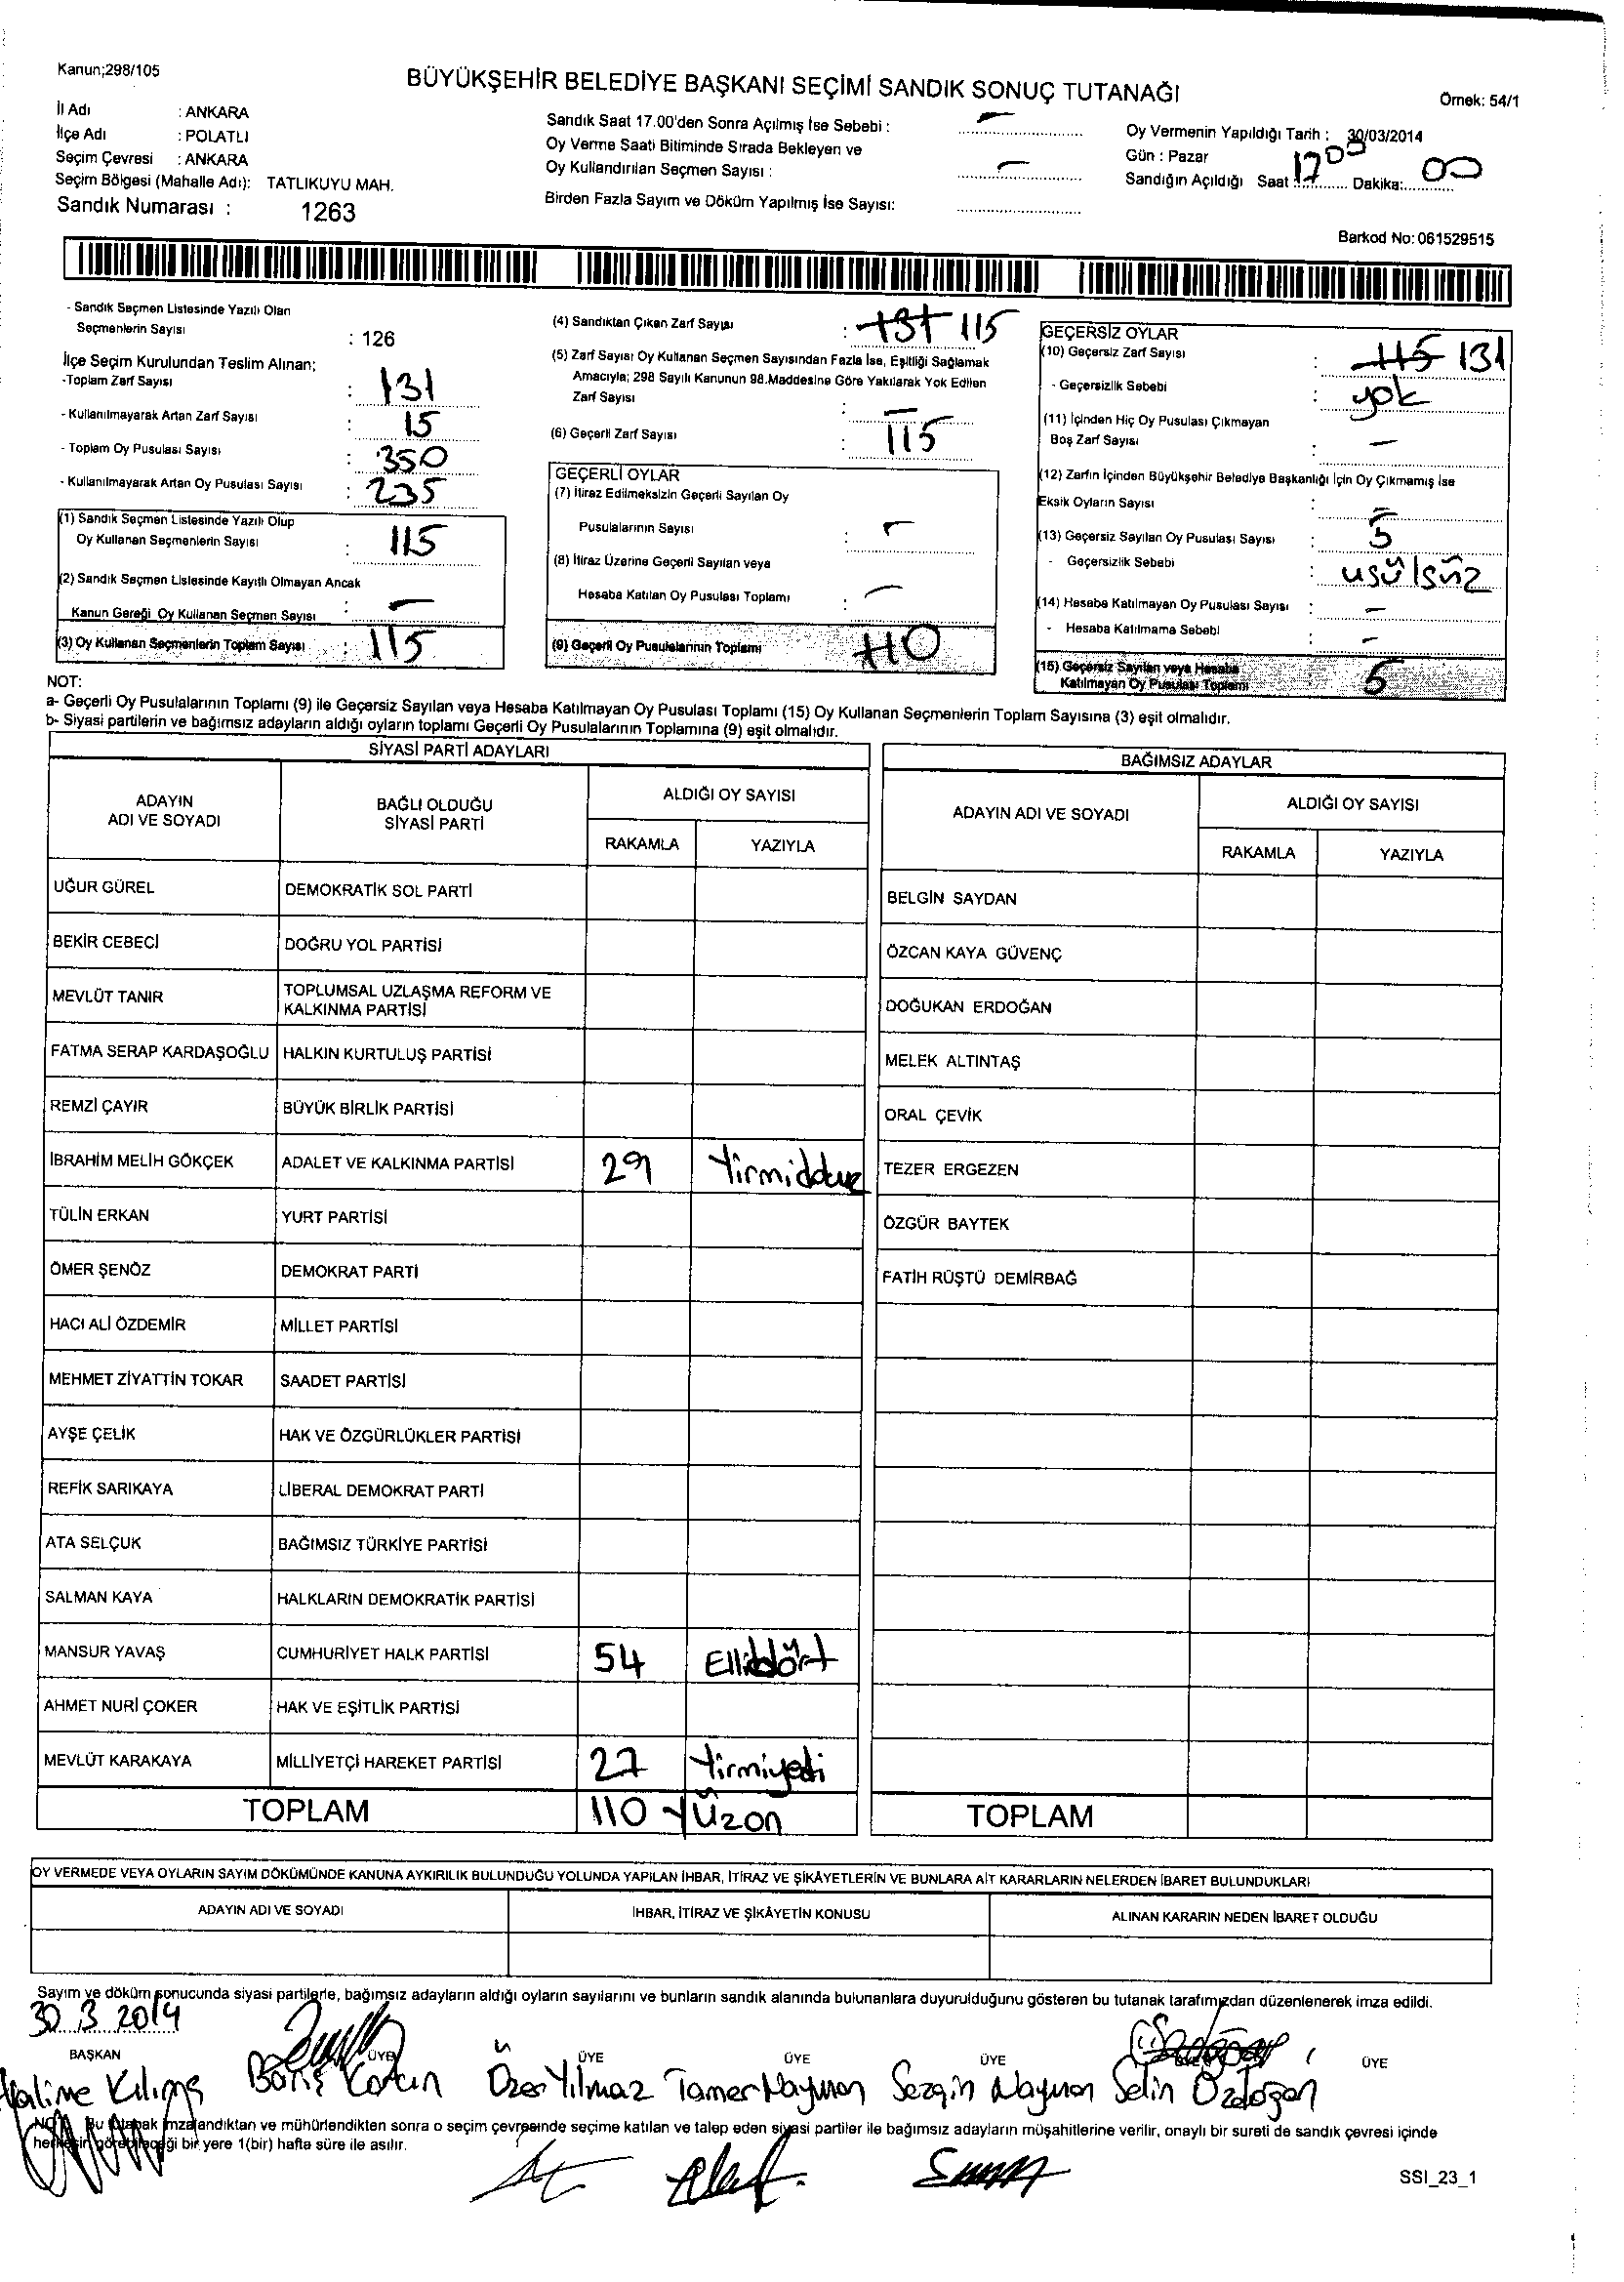 Kanun;298/105
BÜYÜKŞEHİR BELEDİYE BAŞKANI SEÇİMİ SANDIK SONUÇ TUTANAĞI
Örnek: 54/1
İl Adı : ANKARA
İlçe Adı : POLATLI
Seçim Çevresi : ANKARA
Seçim Bölgesi (Mahalle Adı): TATLIKUYU MAH.
Sandık Numarası : 1263
Sandık Saat 17.00'den Sonra Açılmış İse Sebebi : -
Oy Verme Saati Bitiminde Sırada Bekleyen ve
Oy Kullandırılan Seçmen Sayısı : -
Birden Fazla Sayım ve Döküm Yapılmış İse Sayısı:
Oy Vermenin Yapıldığı Tarih : 30/03/2014
Gün : Pazar
Sandığın Açıldığı Saat: 17 00 Dakika: 00
Barkod No: 061529515
- Sandık Seçmen Listesinde Yazılı Olan
Seçmenlerin Sayısı : 126
İlçe Seçim Kurulundan Teslim Alınan;
-Toplam Zarf Sayısı : 131
- Kullanılmayarak Artan Zarf Sayısı : 15
- Toplam Oy Pusulası Sayısı : 350
- Kullanılmayarak Artan Oy Pusulası Sayısı : 235
(1) Sandık Seçmen Listesinde Yazılı Olup
Oy Kullanan Seçmenlerin Sayısı : 115
(2) Sandık Seçmen Listesinde Kayıtlı Olmayan Ancak
Kanun Gereği Oy Kullanan Seçmen Sayısı : -
(3) Oy Kullanan Seçmenlerin Toplam Sayısı : 115
(4) Sandıktan Çıkan Zarf Sayısı : 131 115
(5) Zarf Sayısı Oy Kullanan Seçmen Sayısından Fazla İse, Eşitliği Sağlamak
Amacıyla; 298 Sayılı Kanunun 98.Maddesine Göre Yakılarak Yok Edilen
Zarf Sayısı : -
(6) Geçerli Zarf Sayısı : 115
GEÇERLİ OYLAR
(7) İtiraz Edilmeksizin Geçerli Sayılan Oy
Pusulalarının Sayısı : -
(8) İtiraz Üzerine Geçerli Sayılan veya
Hesaba Katılan Oy Pusulası Toplamı : -
(9) Geçerli Oy Pusulalarının Toplamı 110
GEÇERSİZ OYLAR
(10) Geçersiz Zarf Sayısı : 115 131
- Geçersizlik Sebebi : yok
(11) İçinden Hiç Oy Pusulası Çıkmayan
Boş Zarf Sayısı : -
(12) Zarfın İçinden Büyükşehir Belediye Başkanlığı İçin Oy Çıkmamış İse
Eksik Oyların Sayısı : -
(13) Geçersiz Sayılan Oy Pusulası Sayısı : 5
- Geçersizlik Sebebi : usülsüz
(14) Hesaba Katılmayan Oy Pusulası Sayısı : -
- Hesaba Katılmama Sebebi : -
(15) Geçersiz Sayılan veya Hesaba
Katılmayan Oy Pusulası Toplamı 5
NOT:
a- Geçerli Oy Pusulalarının Toplamı (9) ile Geçersiz Sayılan veya Hesaba Katılmayan Oy Pusulası Toplamı (15) Oy Kullanan Seçmenlerin Toplam Sayısına (3) eşit olmalıdır.
b- Siyasi partilerin ve bağımsız adayların aldığı oyların toplamı Geçerli Oy Pusulalarının Toplamına (9) eşit olmalıdır.
SİYASİ PARTİ ADAYLARI
ADAYIN ADI VE SOYADI BAĞLI OLDUĞU SİYASİ PARTİ ALDIĞI OY SAYISI
RAKAMLA YAZIYLA
UĞUR GÜREL DEMOKRATİK SOL PARTİ
BEKİR CEBECİ DOĞRU YOL PARTİSİ
MEVLÜT TANIR TOPLUMSAL UZLAŞMA REFORM VE KALKINMA PARTİSİ
FATMA SERAP KARDAŞOĞLU HALKIN KURTULUŞ PARTİSİ
REMZİ ÇAYIR BÜYÜK BİRLİK PARTİSİ
İBRAHİM MELİH GÖKÇEK ADALET VE KALKINMA PARTİSİ 29
TÜLİN ERKAN YURT PARTİSİ
ÖMER ŞENÖZ DEMOKRAT PARTİ
HACI ALİ ÖZDEMİR MİLLET PARTİSİ
MEHMET ZİYATTİN TOKAR SAADET PARTİSİ
AYŞE ÇELİK HAK VE ÖZGÜRLÜKLER PARTİSİ
REFİK SARIKAYA LİBERAL DEMOKRAT PARTİ
ATA SELÇUK BAĞIMSIZ TÜRKİYE PARTİSİ
SALMAN KAYA HALKLARIN DEMOKRATİK PARTİSİ
MANSUR YAVAŞ CUMHURİYET HALK PARTİSİ 54 Ellidört
AHMET NURİ ÇOKER HAK VE EŞİTLİK PARTİSİ
MEVLÜT KARAKAYA MİLLİYETÇİ HAREKET PARTİSİ 27 Yirmiyedi
TOPLAM 110 Yüzon
BAĞIMSIZ ADAYLAR
ADAYIN ADI VE SOYADI ALDIĞI OY SAYISI
RAKAMLA YAZIYLA
BELGİN SAYDAN
ÖZCAN KAYA GÜVENÇ
DOĞUKAN ERDOĞAN
MELEK ALTINTAŞ
ORAL ÇEVİK
TEZER ERGEZEN
ÖZGÜR BAYTEK
FATİH RÜŞTÜ DEMİRBAĞ
TOPLAM
OY VERMEDE VEYA OYLARIN SAYIM DÖKÜMÜNDE KANUNA AYKIRILIK BULUNDUĞU YOLUNDA YAPILAN İHBAR, İTİRAZ VE ŞİKÂYETLERİN VE BUNLARA AİT KARARLARIN NELERDEN İBARET BULUNDUKLARI
ADAYIN ADI VE SOYADI İHBAR, İTİRAZ VE ŞİKÂYETİN KONUSU ALINAN KARARIN NEDEN İBARET OLDUĞU
Sayım ve döküm sonucunda siyasi partilerle, bağımsız adayların aldığı oyların sayılarını ve bunların sandık alanında bulunanlara duyurulduğunu gösteren bu tutanak tarafımızdan düzenlenerek imza edildi.
30.3.2014
BAŞKAN ÜYE ÜYE ÜYE ÜYE ÜYE
Halime Kılınç Barış Özer Yılmaz Tamer Sezgin Selin Özdoğan
NOT: Bu tutanak imzalandıktan ve mühürlendikten sonra o seçim çevresinde seçime katılan ve talep eden siyasi partiler ile bağımsız adayların müşahitlerine verilir, onaylı bir sureti de sandık çevresi içinde
herkesin görebileceği bir yere 1(bir) hafta süre ile asılır.
SSI_23_1